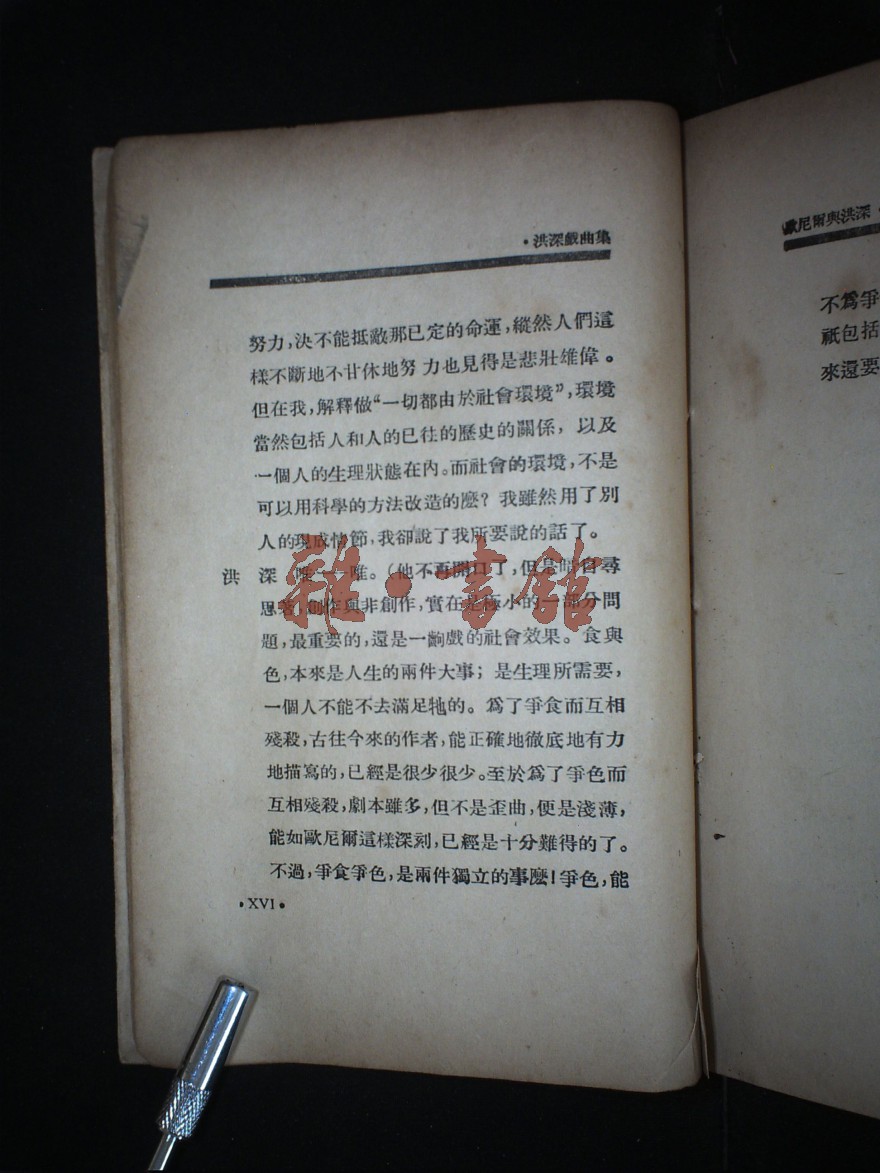 •洪深戲曲集
努力，決不能抵敵那已定的命運，縱然人們這
樣不斷地不甘休地努力也見得是悲壯雄偉。
但在我，解釋做“一切都由於社會環境”，環境
當然包括人和人的已往的歷史的關係，以及
一個人的生理狀態在內。而社會的環境，不是
可以用科學的方法改造的麽？我雖然用了別
人的現成情節，我卻說了我所要說的話了。
洪 深 唯——唯。（他不再開口了，但是暗自尋
思着，創作與非創作，實在是極小的一部分問
題，最重要的，還是一齣戲的社會效果。食與
色，本來是人生的兩件大事；是生理所需要，
一個人不能不去滿足牠的。爲了爭食而互相
殘殺，古往今來的作者，能正確地徹底地有力
地描寫的，已經是很少很少。至於爲了爭色而
互相殘殺，劇本雖多，但不是歪曲，便是淺薄，
能如歐尼爾這樣深刻，已經是十分難得的了。
不過，爭食爭色，是兩件獨立的事麽！爭色，能
•XVI•
雅·書館
歐尼爾與洪深•
不爲爭
祇包括
來還要